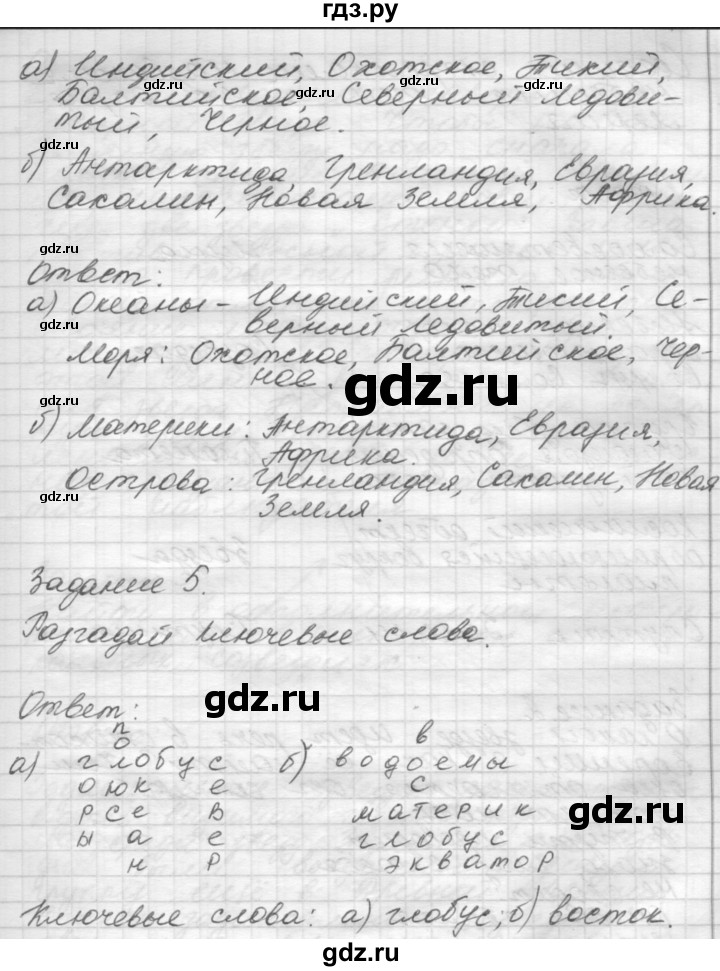 гдз.ру
а) Индийский, Охотское, Тихий,
gdz.ru gdz.ru gdz.ru
Балтийское, Северный Ледови-
тый, Черное.
gdz.ru
б) Антарктида, Гренландия, Евразия,
gdz.ru gdz.ru
Сахалин, Новая Земля, Африка.
gdz.ru
Ответ:
gdz.ru
а) Океаны - Индийский, Тихий, Се-
верный Ледовитый.
Моря: Охотское, Балтийское, Чер-
ное.
gdz.ru
gdz.ru
б) Материки: Антарктида, Евразия,
Африка.
Острова: Гренландия, Сахалин, Новая
gdz.ru
Земля.
Задание 5.
Разгадай ключевые слова.
gdz.ru
Ответ:
п в
а) о б) водоемы
глобус с
оюк е материк
рсе в глобус
ы а е экватор
н р
gdz.ru
Ключевые слова: а) глобус, б) восток.
gdz.ru